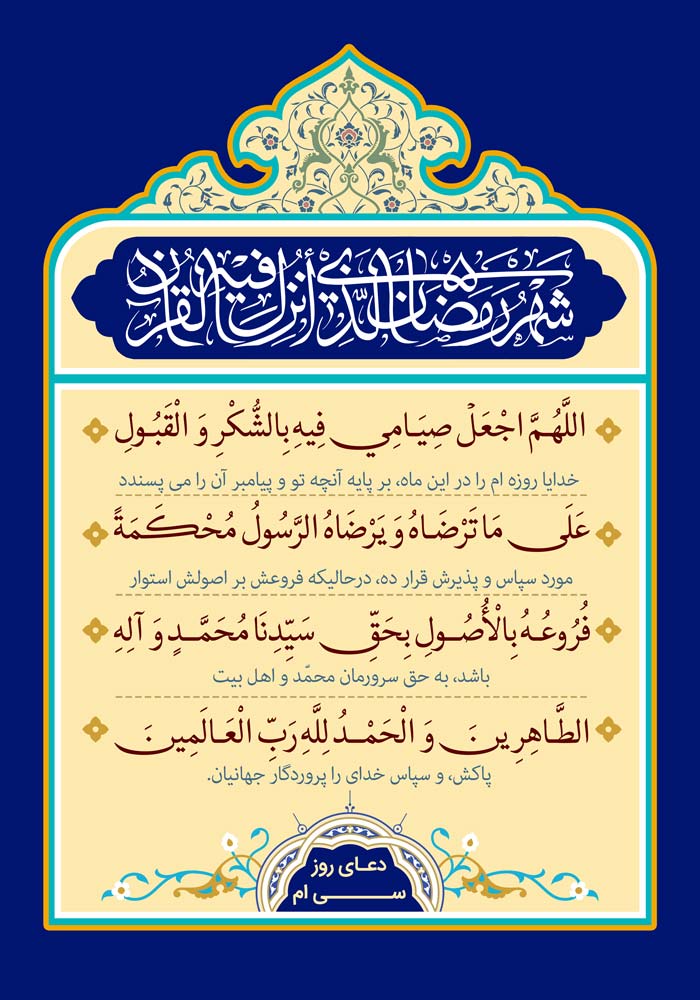 شهر رمضان الذي أنزل فيه القرآن
اللَّهُمَّ اجْعَلْ صِيَامِي فِيهِ بِالشُّكْرِ وَ الْقَبُولِ
خدایا روزه ام را در این ماه، بر پایه آنچه تو و پیامبر آن را می پسندد
عَلَى مَا تَرْضَاهُ وَ يَرْضَاهُ الرَّسُولُ مُحْكَمَةً
مورد سپاس و پذیرش قرار ده، درحالیکه فروعش بر اصولش استوار
فُرُوعُهُ بِالْأُصُولِ بِحَقِّ سَيِّدِنَا مُحَمَّدٍ وَ آلِهِ
باشد، به حق سرورمان محمّد و اهل بیت
الطَّاهِرِينَ وَ الْحَمْدُ لِلَّهِ رَبِّ الْعَالَمِينَ
پاکش، و سپاس خدای را پروردگار جهانیان.
دعای روز
سی ام